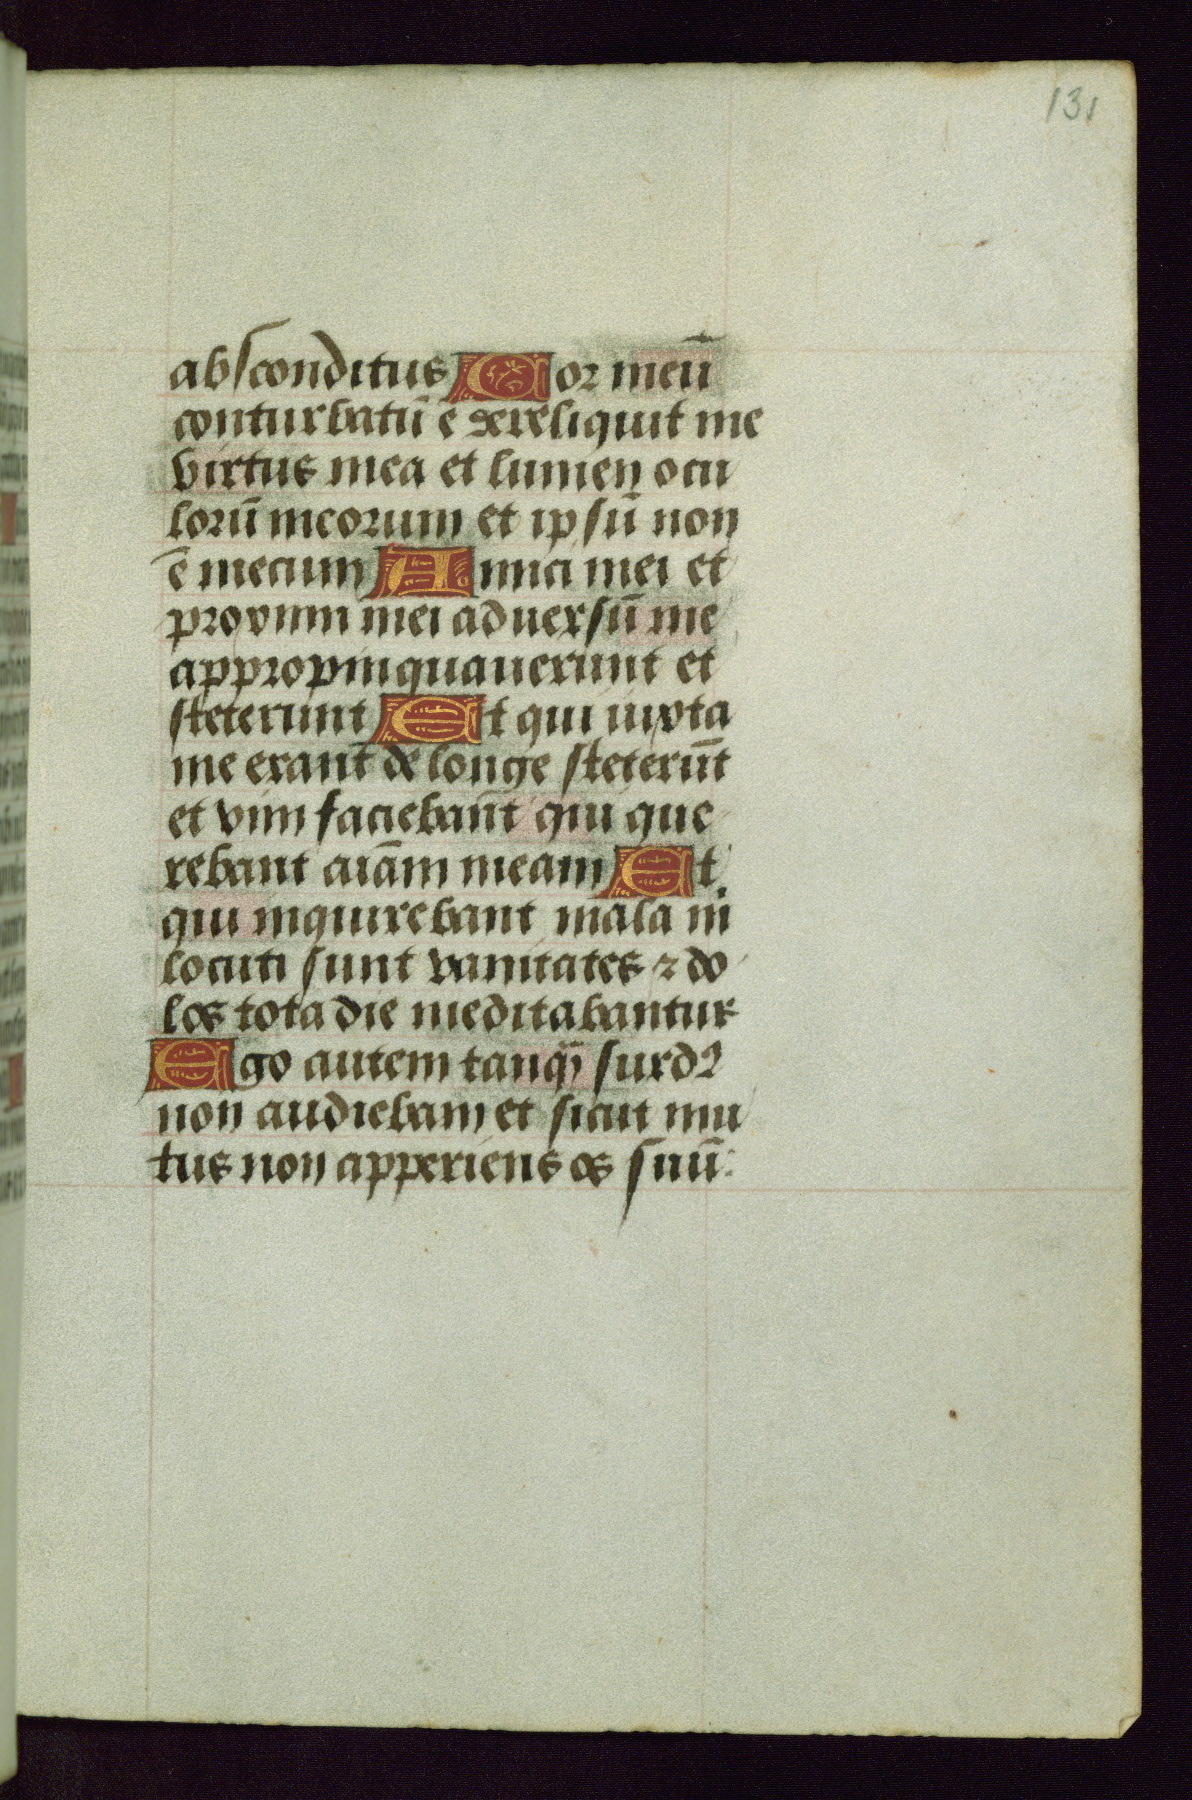 131
absconditus Cor meū
conturbatū ē dereliquit me
virtus mea et lumen ocu
lorū meorum et ipsū non
ē mecum Amici mei et
proximi mei aduersū me
appropinquauerunt et
steterunt Et qui iuxta
me erant de longe steterūt
et vim faciebant qui que
rebant aīam meam Et
qui inquirebant mala m̄
locuti sunt vanitates ⁊ do
los tota die meditabantur
Ego autem tanq̄ surdꝰ
non audiebam et sicut mu
tus non apperiens os suū: